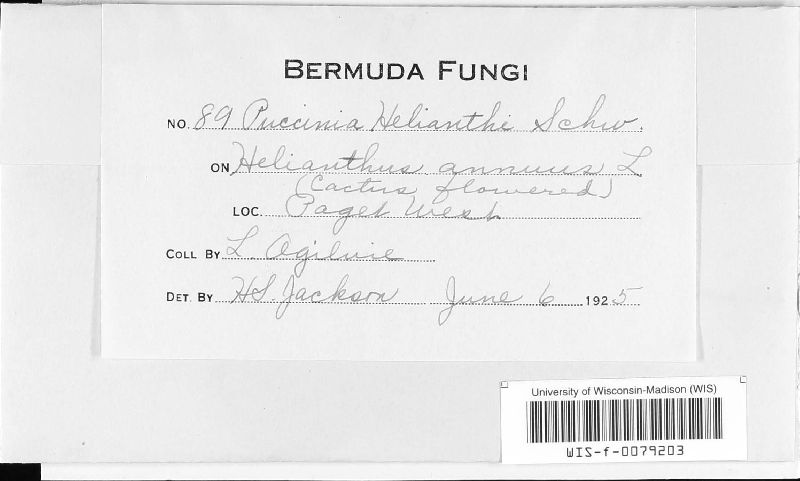 BERMUDA FUNGI
NO. 89 Puccinia Helianthi Schw.
ON Helianthus annuus L
(Cactus flowered)
LOC. Paget West
COLL BY L Ogilvie
DET. BY H.S. Jackson June 6 1925
University of Wisconsin-Madison (WIS)
WIS-f-0079203